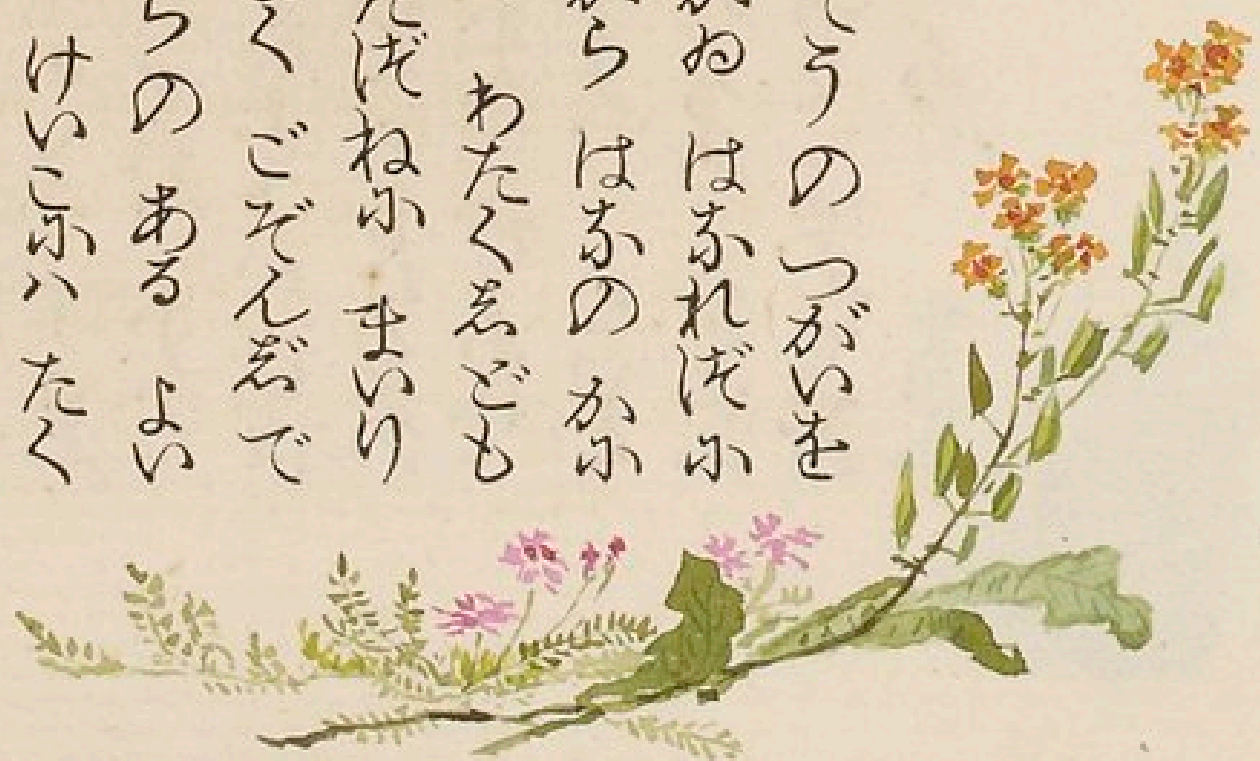 うの つがいを
ゐ はなれば に
ら はなの かに
わたくしども
ばねに まいり
く ごぞんじで
らの ある よい
けいこには たく